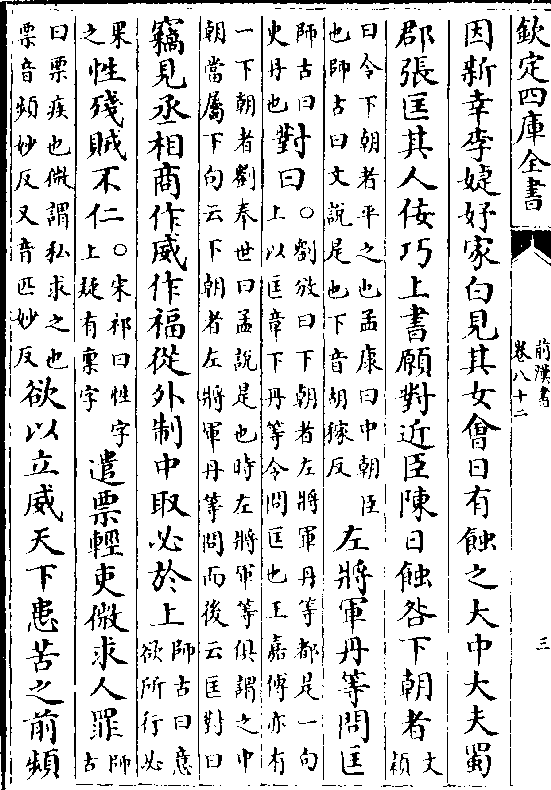 欽定四庫全書
前漢書
卷八十二
三
因新幸李婕妤家白見其女會日有蝕之大中大夫蜀
郡張匡其人佞巧上書願對近臣陳日蝕咎下朝者文頴
曰令下朝者平之也孟康曰中朝臣
也師古曰文說是也下音胡稼反
左將軍丹等問匡
師古曰
史丹也
對曰
○劉攽曰下朝者左將軍丹等都是一句
上以匡章下丹等令問匡也王嘉傳亦有
一下朝者劉奉世曰孟說是也時左將軍等俱謂之中
朝當屬下句云下朝者左將軍丹等問而後云匡對曰
竊見丞相商作威作福從外制中取必於上
師古曰意
欲所行必
果
之
性殘賊不仁
○宋祁曰性字
上疑有稟字
遣票輕吏微求人罪
師
古
曰票疾也微謂私求之也
票音頻妙反又音匹妙反
欲以立威天下患苦之前頻